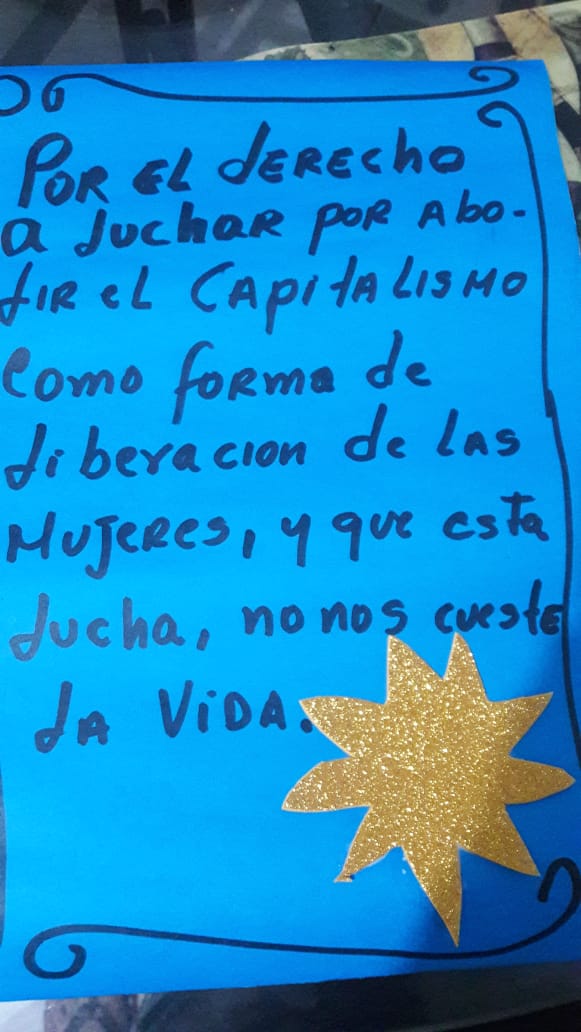 POR EL dERECho
a luchaR poR Abo-
liR eL CApitALISMO
Como foRma de
liberacion de LAS
MujeRes, y que esta
lucha, no nos cueste
lA ViDA.